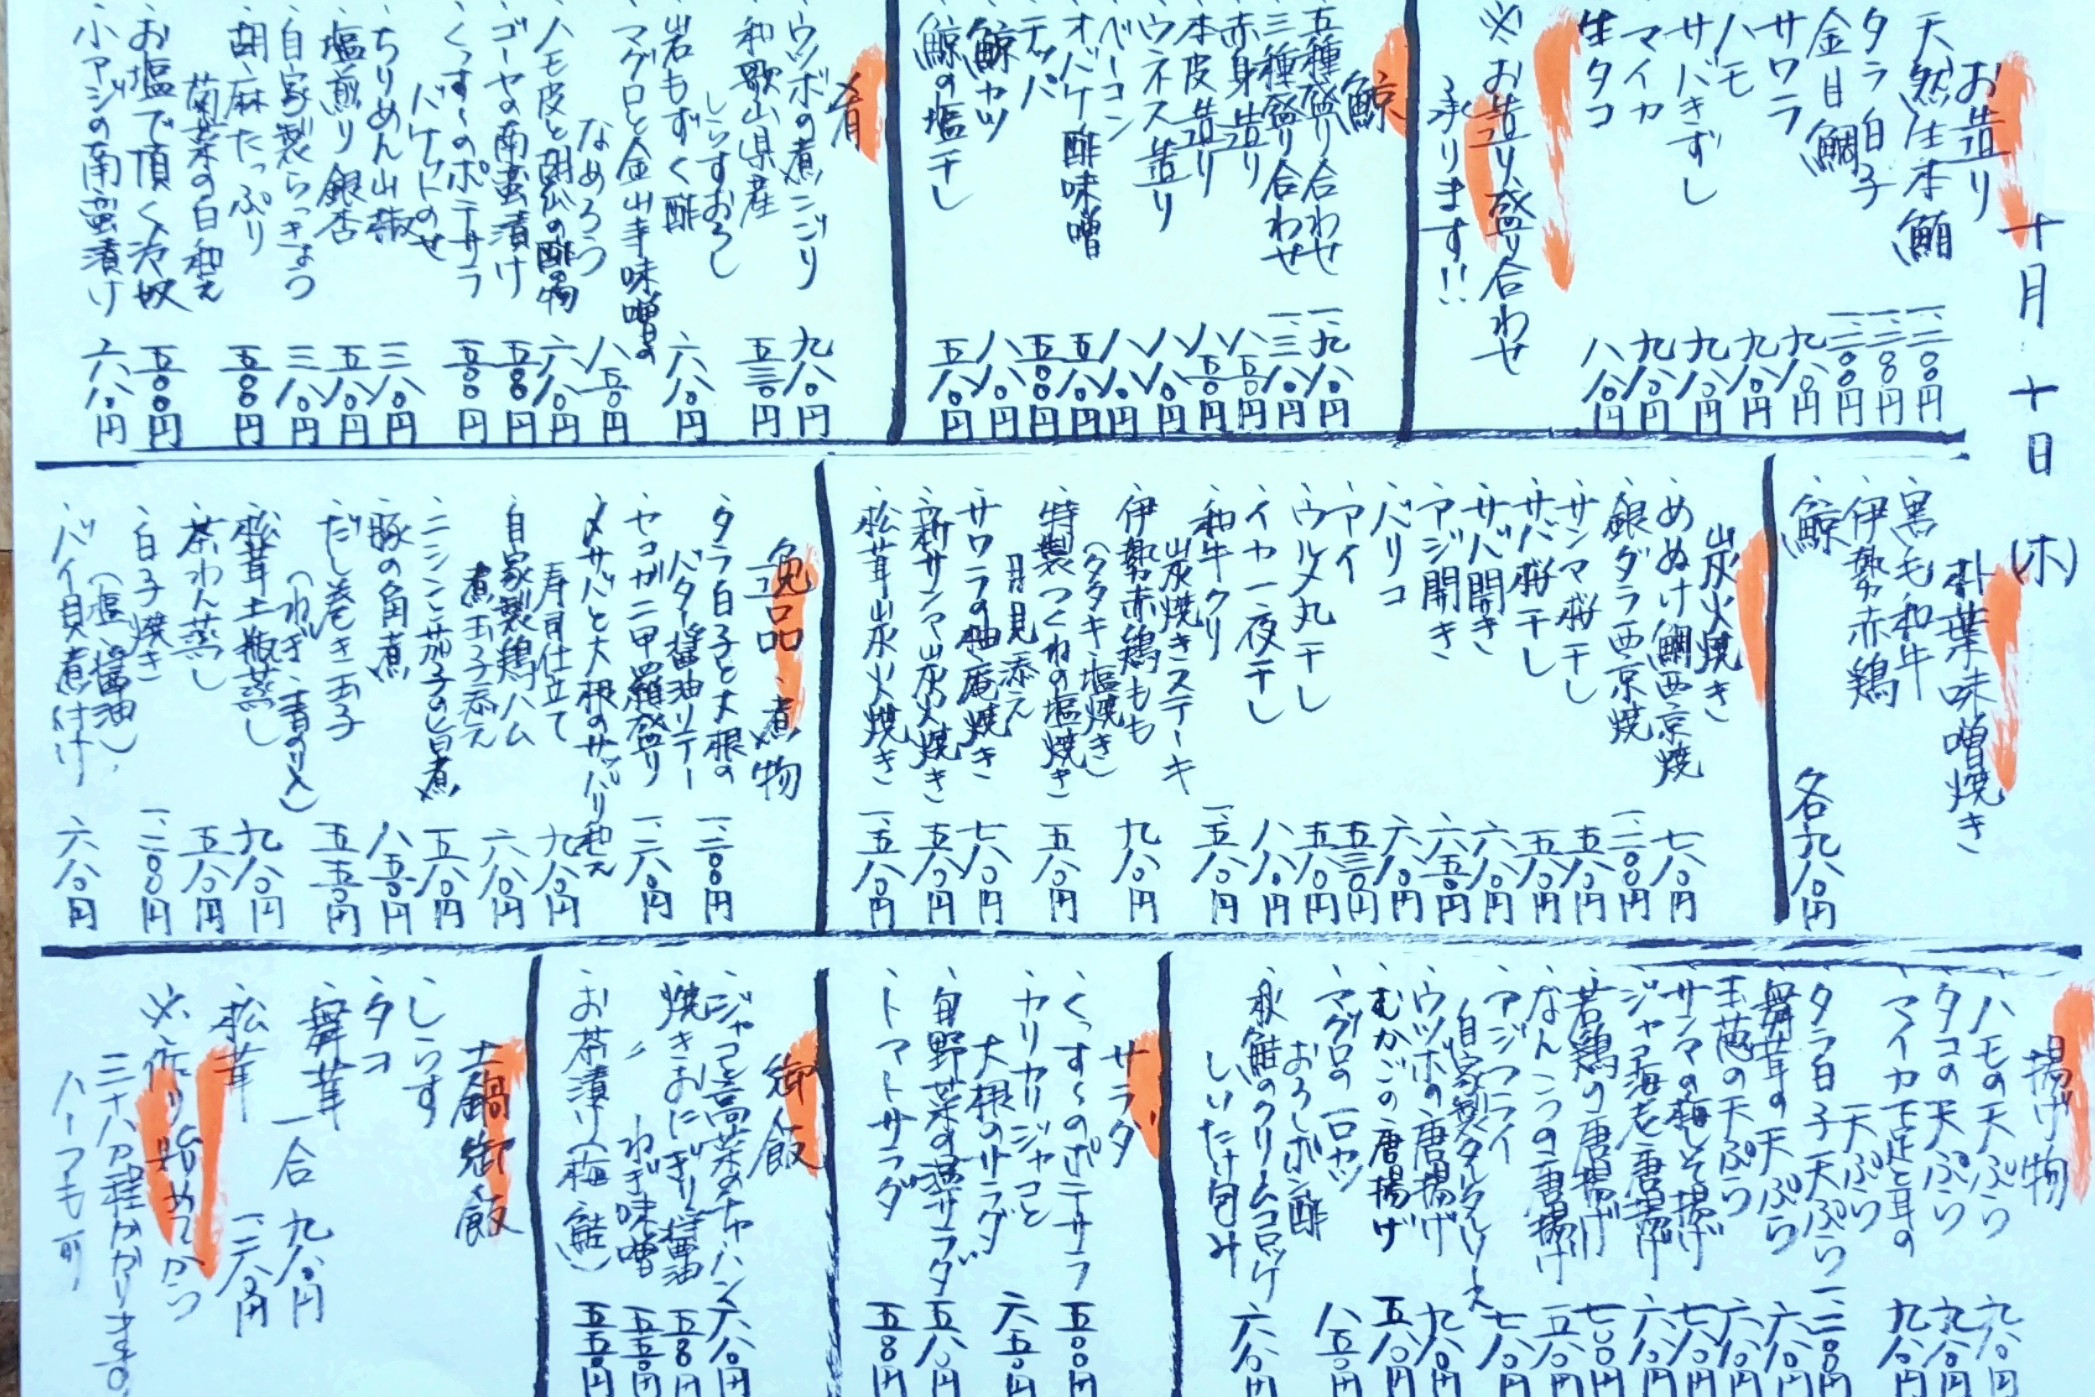 十月十日(木)
お造り
天然生本鮪 一、三〇〇円
タラ白子 一、三〇〇円
金目鯛 一、三〇〇円
サワラ 九八〇円
ハモ 九八〇円
サバきずし 九八〇円
マイカ 九八〇円
生タコ 八八〇円
※お造り盛り合わせ
承ります!!
鯨
五種盛り合わせ 一、九八〇円
三種盛り合わせ 一、三八〇円
赤身造り 八五〇円
本皮造り 八五〇円
ウネス造り 八八〇円
ベーコン 八八〇円
オバケ酢味噌 五八〇円
テッパ 五〇〇円
鯨カツ 八八〇円
鯨の塩干し 五八〇円
肴
ウツボの煮こごり 九八〇円
和歌山県産
しらすおろし 五三〇円
岩もずく酢 六八〇円
マグロと金山寺味噌の
なめろう 八五〇円
ハモ皮と胡瓜の酢の物 六八〇円
ゴーヤの南蛮漬け 五〇〇円
くっすーのポテサラ
バケットのせ 五〇〇円
ちりめん山椒 三八〇円
塩煎り銀杏 五八〇円
自家製らっきょう 三八〇円
胡麻たっぷり
菊菜の白和え 五〇〇円
お塩で頂く冷奴 五〇〇円
小アジの南蛮漬け 六八〇円
朴葉味噌焼き
黒毛和牛
伊勢赤鶏
鯨
各九八〇円
炭火焼き
めぬけ鯛西京焼 七八〇円
銀ダラ西京焼 一、二〇〇円
サンマ桜干し 五八〇円
サバ桜干し 五八〇円
サバ開き 六八〇円
アジ開き 六五〇円
バリコ 六八〇円
アイ 五三〇円
ウルメ丸干し 五八〇円
イカ一夜干し 八八〇円
和牛クリ
炭焼きステーキ 一、五八〇円
伊勢赤鶏もも
(タタキ・塩焼き) 九八〇円
特製つくねの塩焼き
月見添え 五八〇円
サワラの柚庵焼き 七八〇円
新サンマ炭火焼き 五八〇円
松茸炭火焼き 一、五八〇円
逸品・煮物
タラ白子と大根の
バター醤油ソテー 一、三〇〇円
セコガニ甲羅盛り 一、二八〇円
〆サバと大根のサッパリ和え
寿司仕立て 九八〇円
自家製鶏ハム
煮玉子添え 六八〇円
ニシンと茄子の旨煮 五八〇円
豚の角煮 八五〇円
だし巻き玉子
(ねぎ・青のり) 五五〇円
松茸土瓶蒸し 九八〇円
茶わん蒸し 五八〇円
白子焼き
(塩・醤油) 一、二〇〇円
バイ貝煮付け 六八〇円
揚げ物
ハモの天ぷら 九八〇円
タコの天ぷら 九八〇円
マイカ下足と耳の
天ぷら 九八〇円
タラ白子天ぷら 一、三〇〇円
舞茸の天ぷら 六八〇円
玉葱の天ぷら 六八〇円
サンマの梅しそ揚げ 七八〇円
ジャコ海老唐揚げ 六八〇円
若鶏の唐揚げ 七〇〇円
なんこつの唐揚げ 五八〇円
アジフライ
自家製タルタルソース 七八〇円
ウツボの唐揚げ 九八〇円
むかごの唐揚げ 五八〇円
マグロの一口カツ
おろしポン酢 八五〇円
秋鮭のクリームコロッケ
しいたけ包み 六八〇円
サラダ
くっすーのポテサラ 五〇〇円
カリカリジャコと
大根のサラダ 六五〇円
旬野菜の温サラダ 五八〇円
トマトサラダ 五〇〇円
御飯
ジャコと高菜のチャーハン 六八〇円
焼きおにぎり 醤油 五〇〇円
〃 ねぎ味噌 五五〇円
お茶漬け(梅・鮭) 五五〇円
土鍋御飯
しらす
タコ
舞茸 一合 九八〇円
松茸 一、二八〇円
※作り始めてから
三十八分程かかります。
ハーフも可